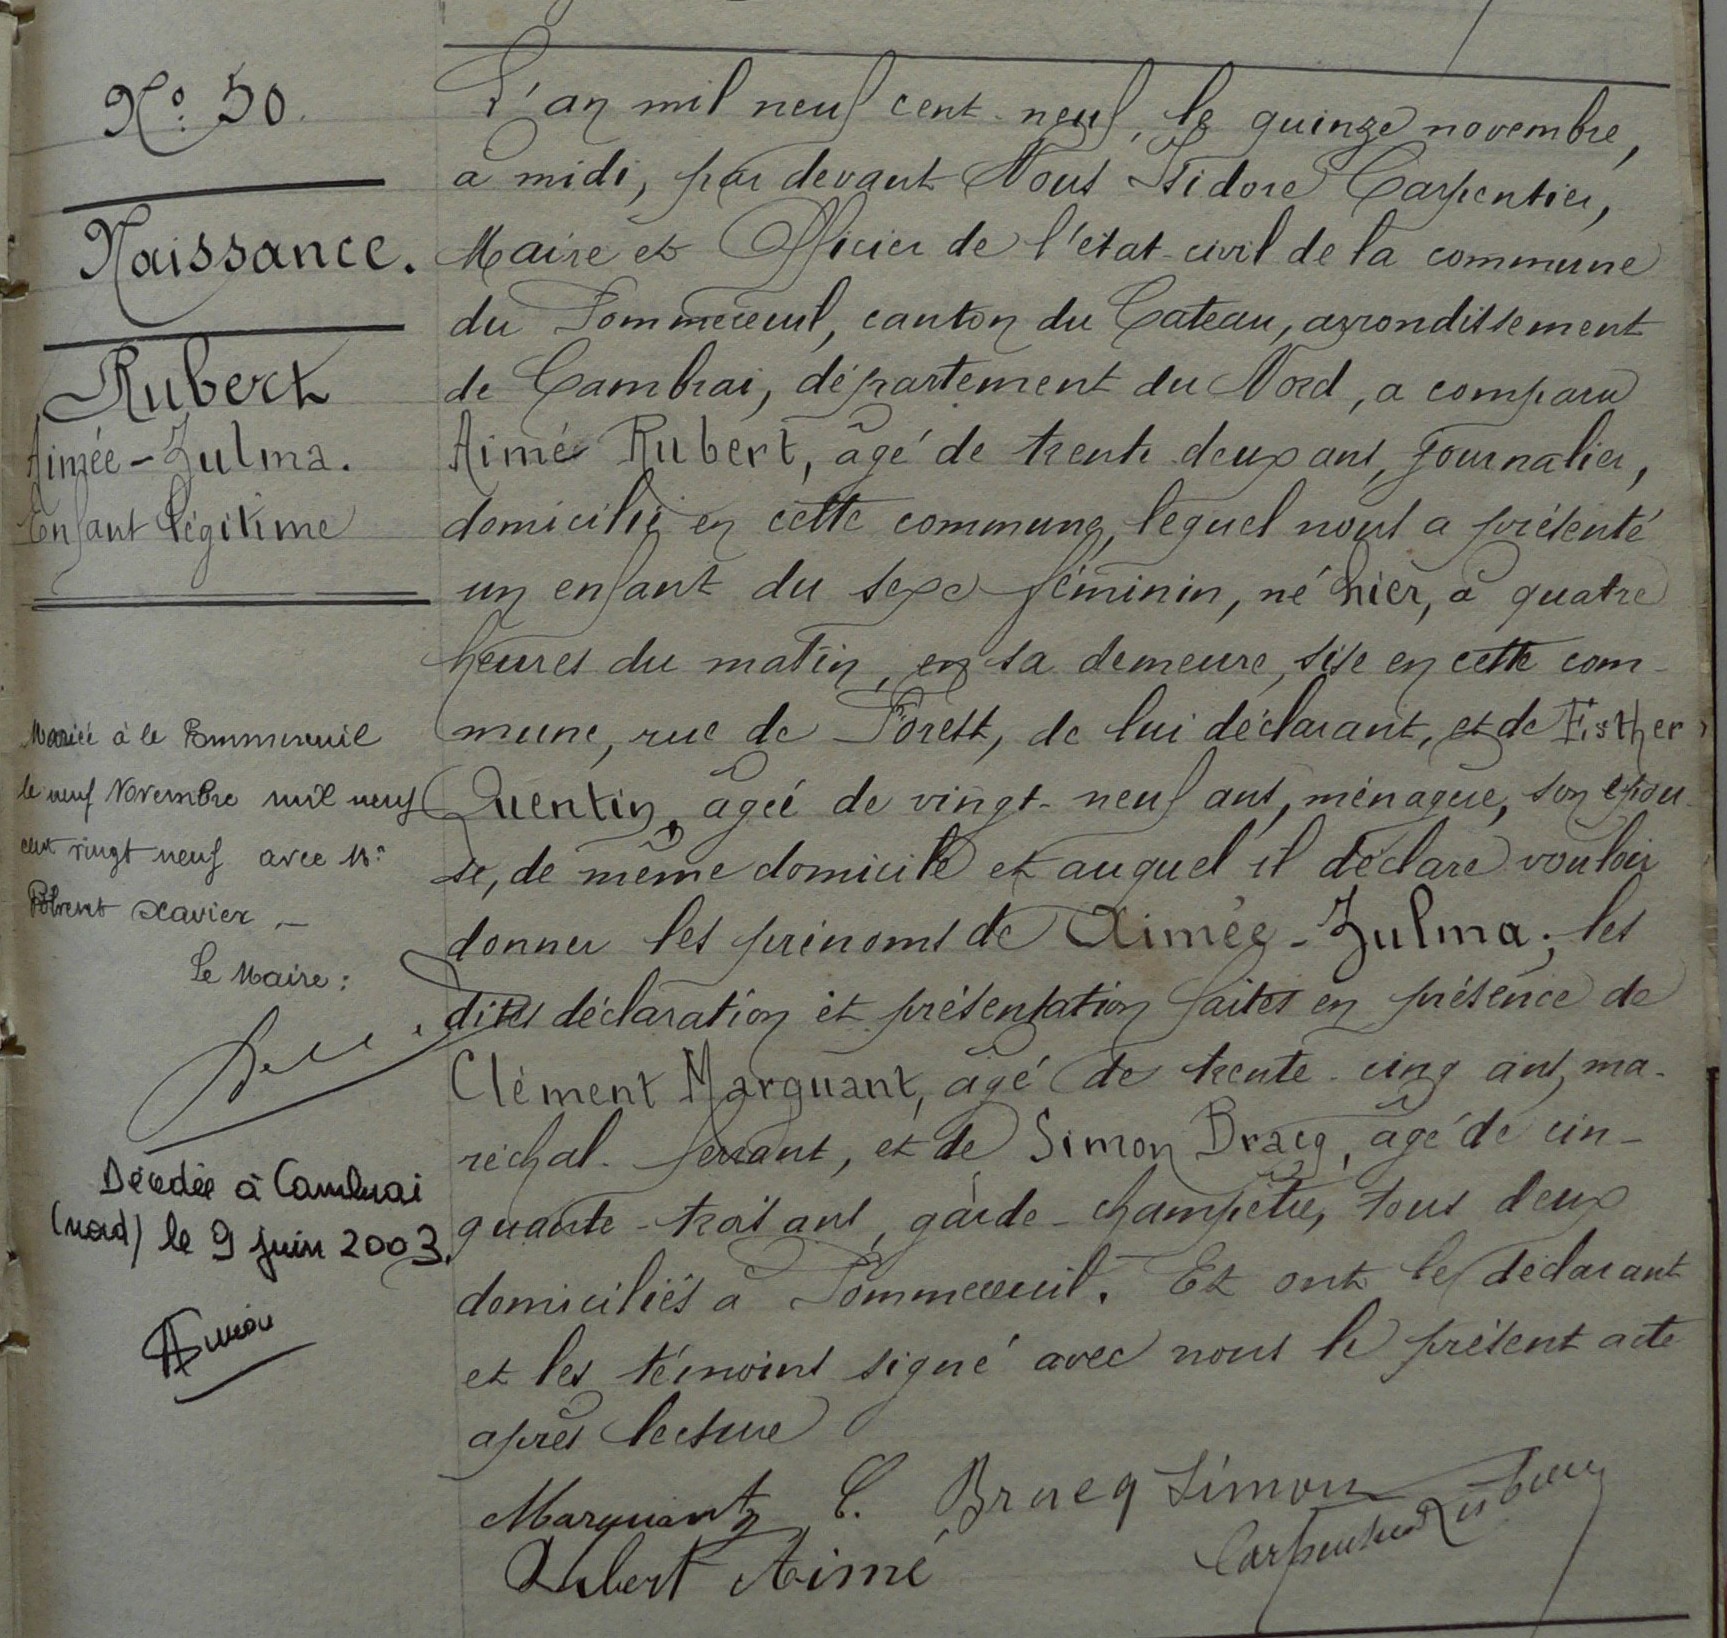 N.º 50.
Naissance.
Rubert
Aimée-Zulma.
Enfant légitime
Mariée à le Pommereuil
le neuf Novembre mil neuf
cent vingt neuf avec Mr
Xavier —
Le Maire :
Décédée à Cambrai
(nord) le 9 juin 2003.
L'an mil neuf cent neuf, le quinze novembre,
à midi, par devant Nous Isidore Carpentier,
Maire et Officier de l'état-civil de la commune
du Pommereuil, canton du Cateau, arrondissement
de Cambrai, département du Nord, a comparu
Aimé Rubert, âgé de trente deux ans, journalier,
domicilié en cette commune, lequel nous a présenté
un enfant du sexe féminin, né hier, à quatre
heures du matin, en sa demeure, sise en cette com-
mune, rue de Forest, de lui déclarant, et de Esther
Quentin, âgée de vingt-neuf ans, ménagère, son épou-
se, de même domicile et auquel il déclare vouloir
donner les prénoms de Aimée-Zulma; les
dites déclaration et présentation faites en présence de
Clément Marquant, âgé de trente-cinq ans, ma-
réchal-ferrant, et de Simon Bracq, âgé de cin-
quante-trois ans, garde-champêtre, tous deux
domiciliés à Pommereuil. Et ont le déclarant
et les témoins signé avec nous le présent acte
après lecture
Marquant C. Bracq Simon
Rubert Aimé Carpentier